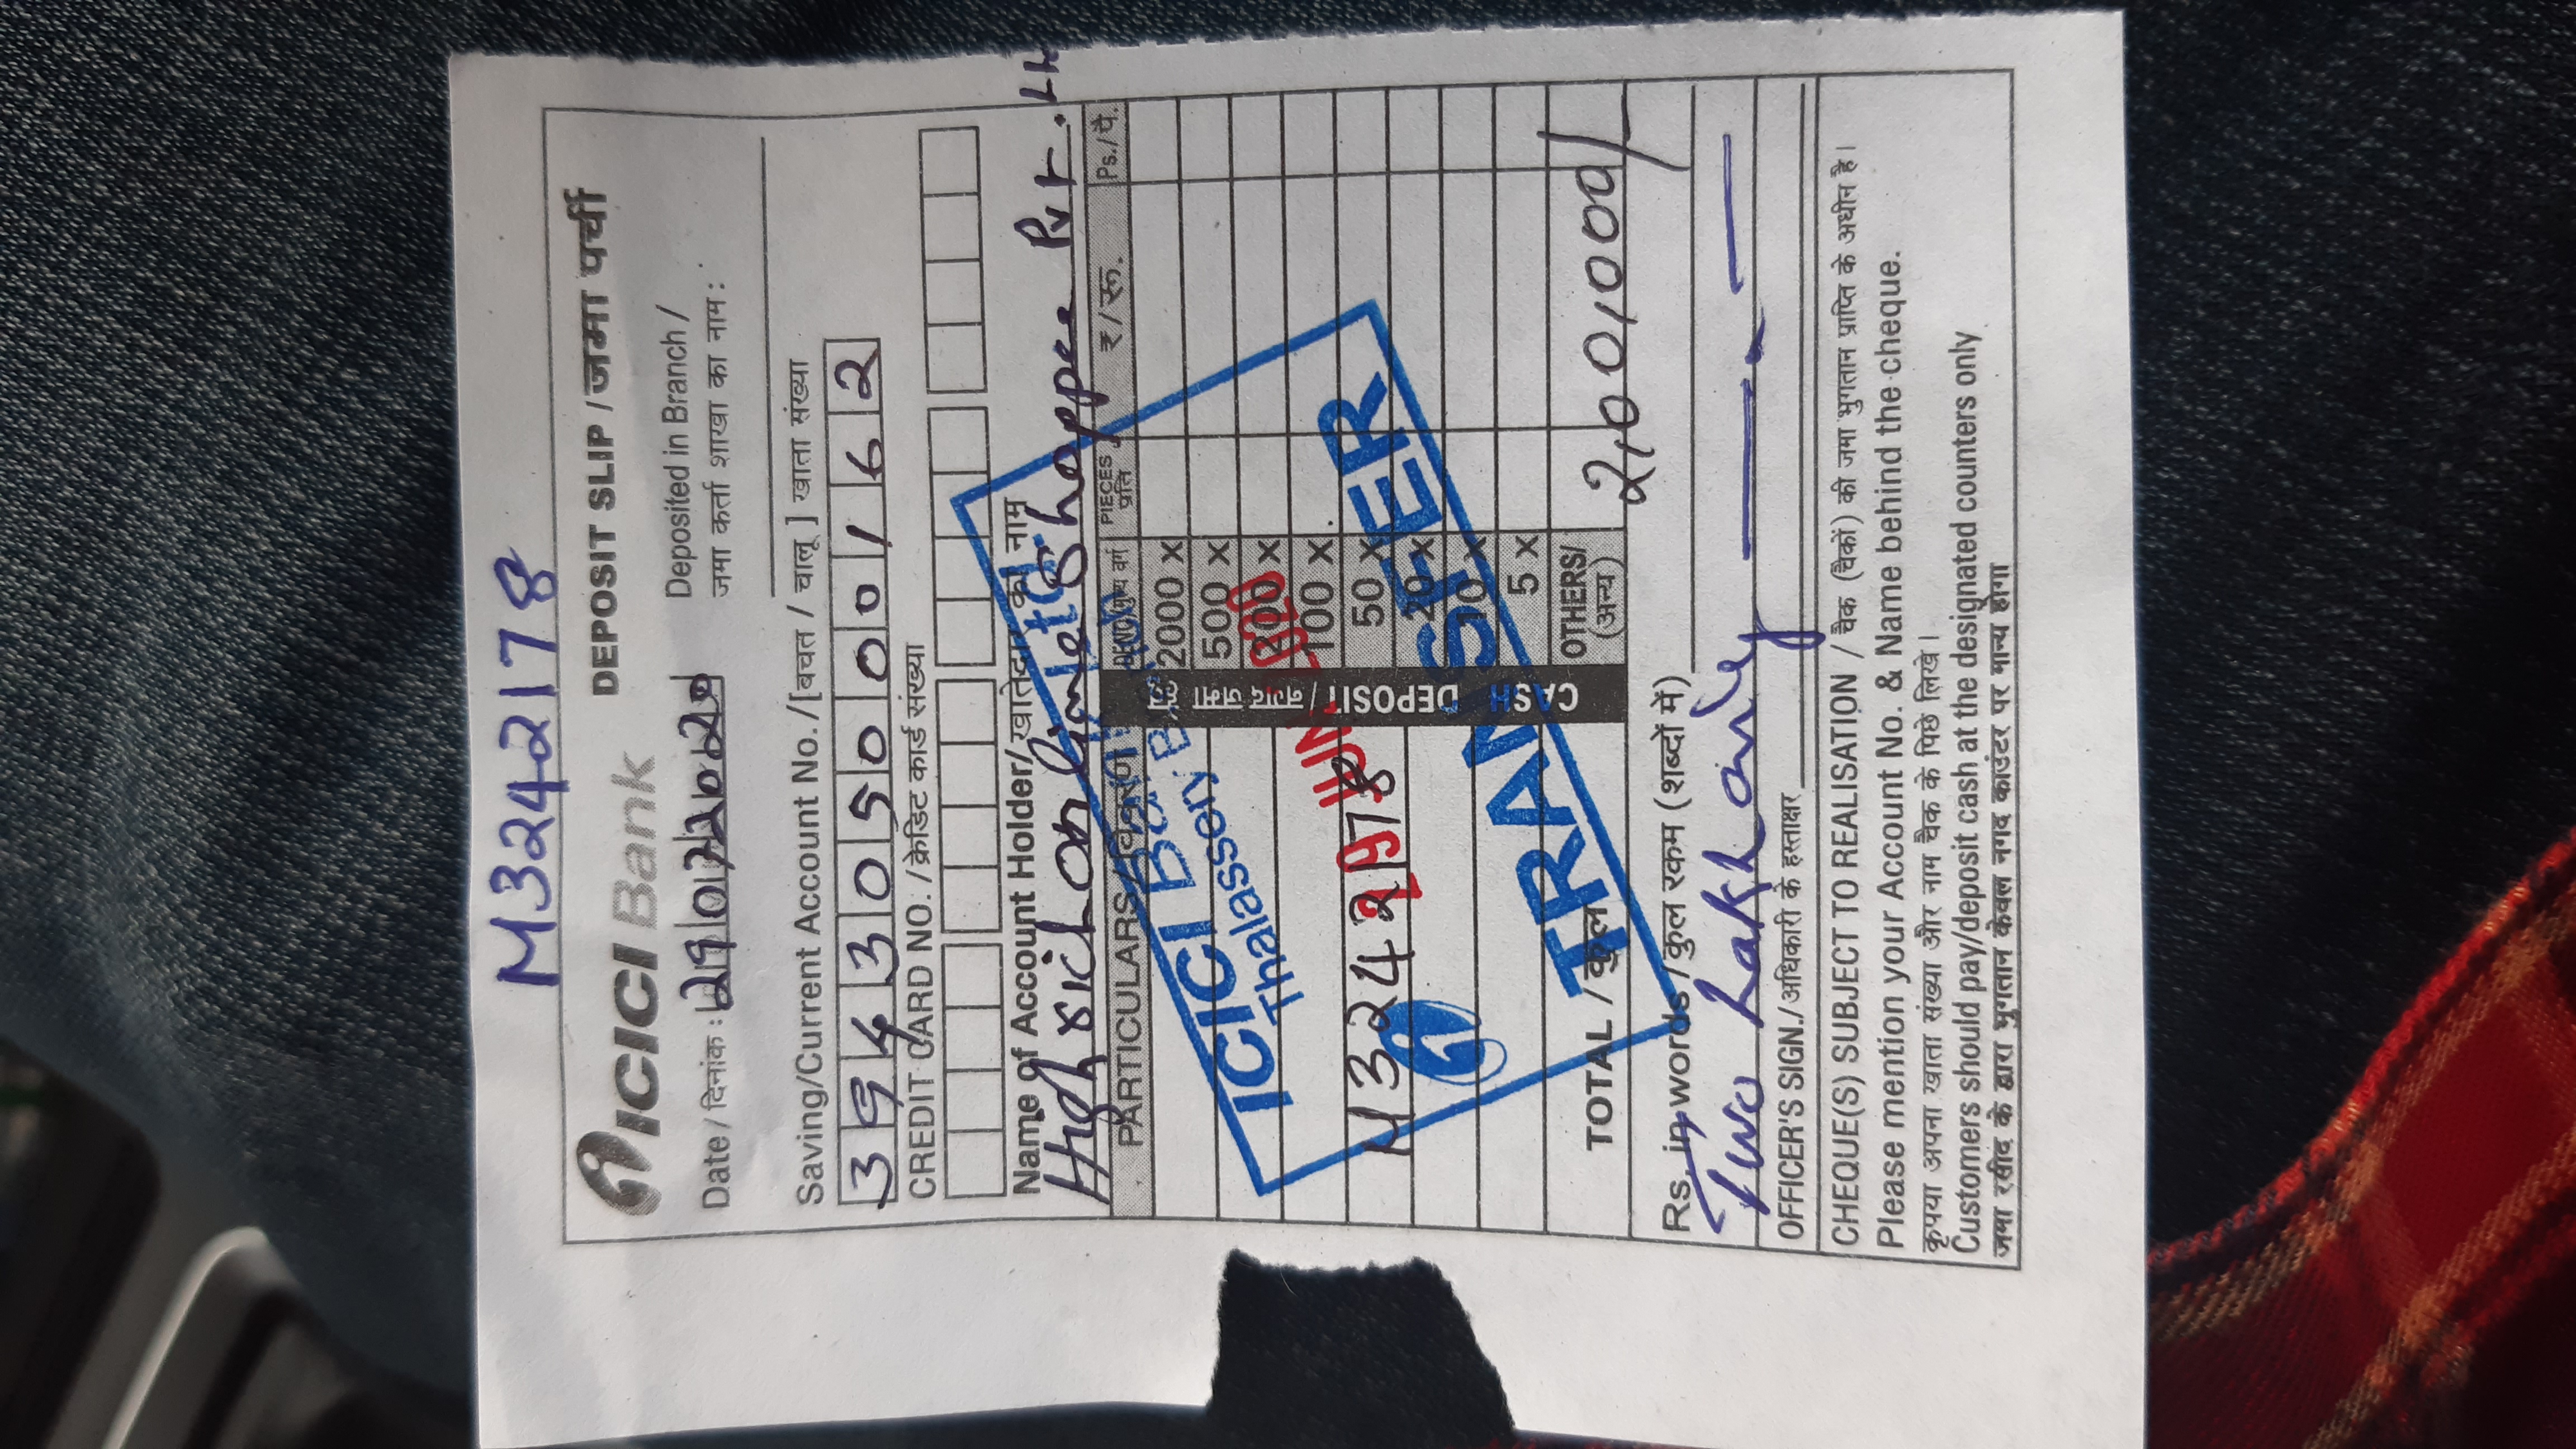 M3242178
ICICI Bank
DEPOSIT SLIP / जमा पर्ची
Date / दिनांक : 29072020
Deposited in Branch /
जमा कर्ता शाखा का नाम :
Saving/Current Account No. /[बचत / चालू ] खाता संख्या
394305000162
CREDIT CARD NO. / क्रेडिट कार्ड संख्या
Name of Account Holder/ खातेदार का नाम
Highrich Online Shoppee Pvt. Lt
PARTICULARS / विवरण
CASH DEPOSIT / नगद जमा हेतु
DENO/मुख्य वर्ग
PIECES प्रति
₹ / रू.
Ps./ पै.
2000 x
500 x
200 x
100 x
50 x
20 x
10 x
5 x
OTHERS/ (अन्य)
2,00,000/-
ICICI Bank Ltd.
Thalassery Branch
29 JUN 2020
M3242178
TRANSFER
TOTAL / कुल
Rs. in words / कुल रकम (शब्दों में)
Two Lakh only
OFFICER'S SIGN./ अधिकारी के हस्ताक्षर
CHEQUE(S) SUBJECT TO REALISATION / चैक (चैकों) की जमा भुगतान प्राप्ति के अधीन है।
Please mention your Account No. & Name behind the cheque.
कृपया अपना खाता संख्या और नाम चैक के पिछे लिखे।
Customers should pay/deposit cash at the designated counters only
जमा रसीद के द्वारा भुगतान केवल नगद काउंटर पर मान्य होगा